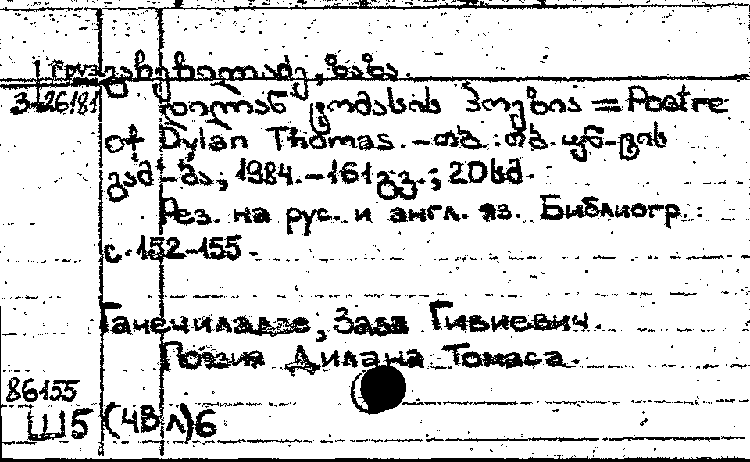 Груз გაჩეჩილაძე, ზაზა.
3-26181 დილან ტომასის პოეზია = Poetre
of Dylan Thomas. - თბ. : თბ. უნ-ტის
გამ-მა, 1984. - 161 გვ. ; 20 სმ.
Рез. на рус. и англ. яз. Библиогр. :
с. 152-155.
Гачечиладзе, Заза Гивиевич.
Поэзия Дилана Томаса.
86155
Ш5 (4Вл)6